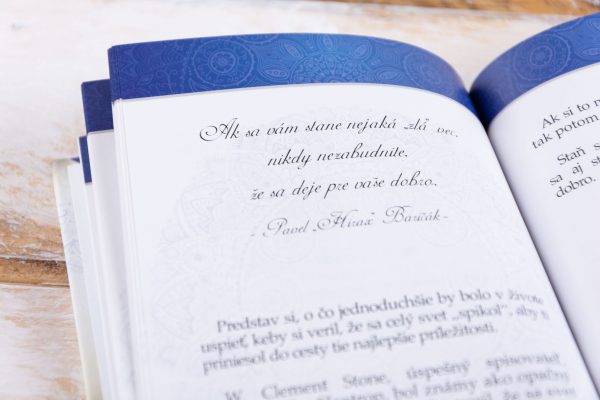 Ak sa vám stane nejaká „zlá“ vec,
nikdy nezabudnite,
že sa deje pre vaše dobro.
- Pavel „Hirax“ Baričák -
Predstav si, o čo jednoduchšie by bolo v živote
uspieť, keby si veril, že sa celý svet „spikol“, aby ti
priniesol do cesty tie najlepšie príležitosti.
W. Clement Stone, úspešný spisovateľ,
bol známy ako opačný
že sa svet
Ak si to
tak potom
Staň s
sa aj st
dobro.